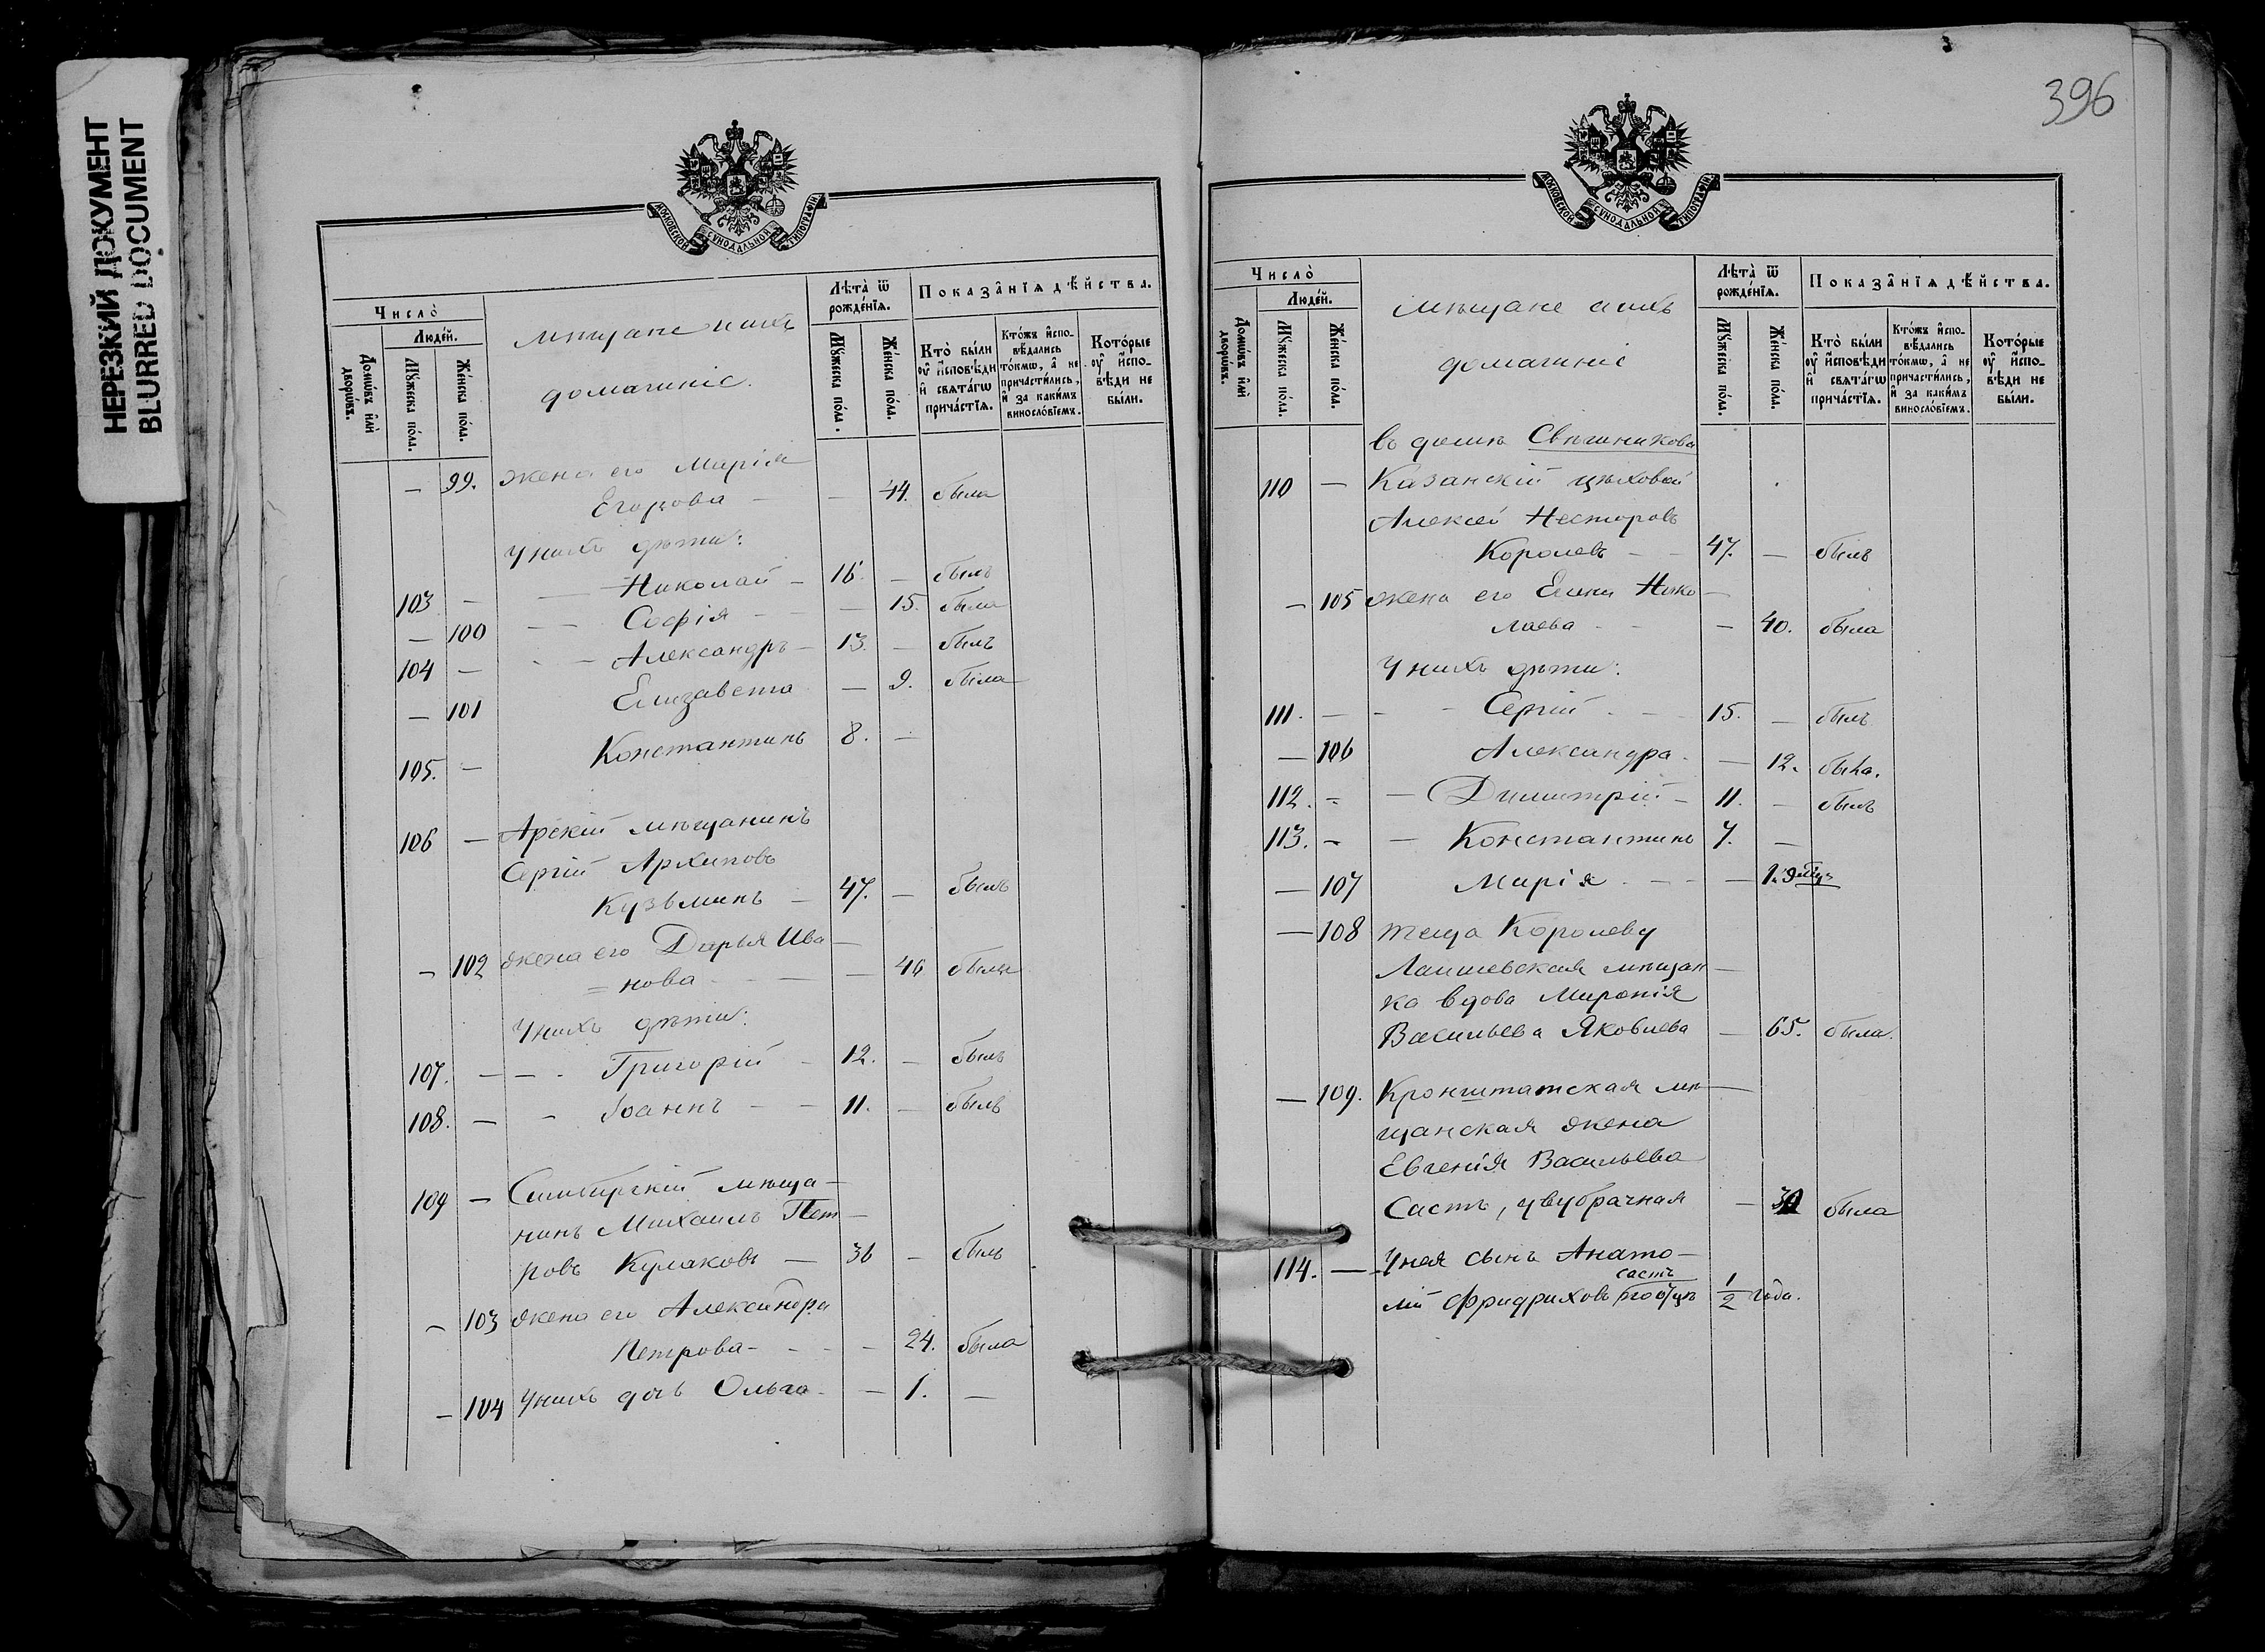 НЕРЕЗКИЙ ДОКУМЕНТ
BLURRED DOCUMENT
МОСКОВСКОЙ СѴНОДАЛЬНОЙ ТИПОГРАФІИ
Число̀
Людей.
Домѡвъ или дворѡвъ.
Мꙋжеска пола.
Женска пола.
Мѣщане и ихъ
домашніе.
Лѣта̀ ѿ рожденїѧ.
Мꙋжеска пола.
Женска пола.
Показанїѧ дѣйства.
Кто̀ были оу исповѣди и свѧтагѡ причастїѧ.
Ктожъ исповѣдались токмѡ, а не причастились, и за какимъ винословїемъ.
Которые оу исповѣди не были.
— 99. жена его Марія
Егорова — — 44. была
У нихъ дѣти:
103 — — Николай — 16. — былъ
— 100 — Софія — — 15. была
104 — - — Александръ — 13. — былъ
— 101 Елизавета — 9. была
105. — Константинъ 8. —
106 — Арскій мѣщанинъ
Сергій Архиповъ
Кузьминъ — 47. — былъ
— 102 жена его Дарья Ива —
= нова — — 46 была
У нихъ дѣти:
107. — — - Григорій — 12. — былъ
108. — - Іоаннъ — — 11. — былъ
109 — Симбирскій мѣща —
нинъ Михаилъ Пет —
ровъ Кулаковъ — 36 — былъ
— 103 жена его Александра
Петрова - - - — 24. была
— 104 У нихъ дочь Ольга — — 1. —
396
МОСКОВСКОЙ СѴНОДАЛЬНОЙ ТИПОГРАФІИ
Число̀
Людей.
Домѡвъ или дворѡвъ.
Мꙋжеска пола.
Женска пола.
Мѣщане и ихъ
домашніе
Лѣта̀ ѿ рожденїѧ.
Мꙋжеска пола.
Женска пола.
Показанїѧ дѣйства.
Кто̀ были оу исповѣди и свѧтагѡ причастїѧ.
Ктожъ исповѣдались токмѡ, а не причастились, и за какимъ винословїемъ.
Которые оу исповѣди не были.
въ домѣ Свѣшникова
110 — Казанскій цѣховой
Алексѣй Несторовъ
Королевъ — — 47. — былъ
— 105 жена его Елена Нико —
лаева - - — 40. была
У нихъ дѣти:
111. — - - Сергій - — 15. — былъ
— 106 Александра. — 12. была.
112. - — Димитрій — 11. — былъ
113. - — Константинъ 7. —
— 107 Марія - — — 1.
— 108 теща Королеву
Лаишевская мѣщан —
ка вдова Миропія
Васильева Яковлева — 65. была.
— 109. Кронштатская мѣ —
щанская жена
Евгенія Васильева
Састъ, двубрачная — была
114. — У ней сынъ Анато —
састъ
лій Фридриховъ 1/2 года.